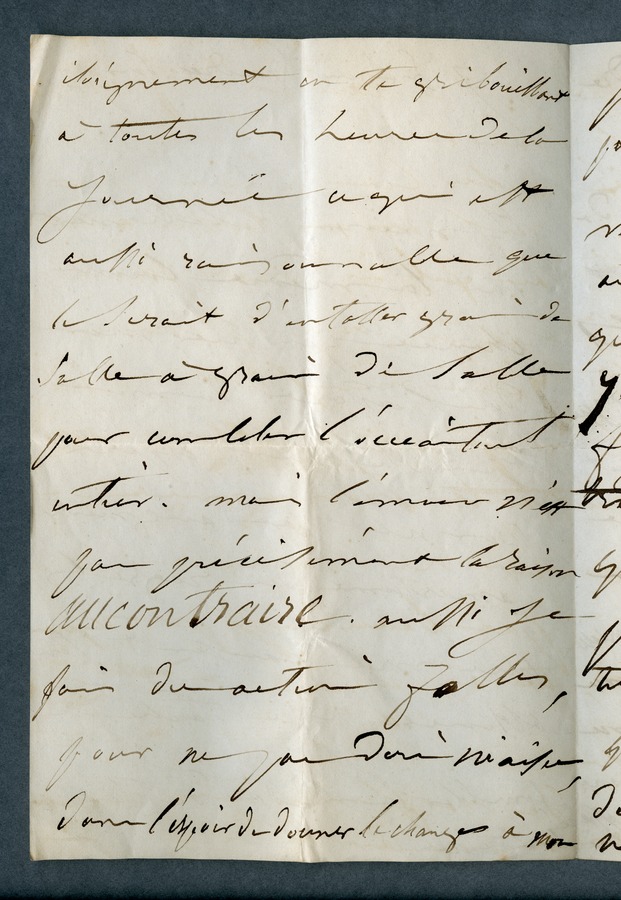 éloignement en te gribouillant
à toutes les heures de la
journée ce qui est
aussi raisonnable que
le serait d'entasser grain de
sable à grain de sable
pour combler l'océan
entier. mais l'amour n'est
pas précisément la raison
au contraire. aussi je
fais des actions folles,
pour ne pas dire niaises,
dans l'espoir de donner le change à mon